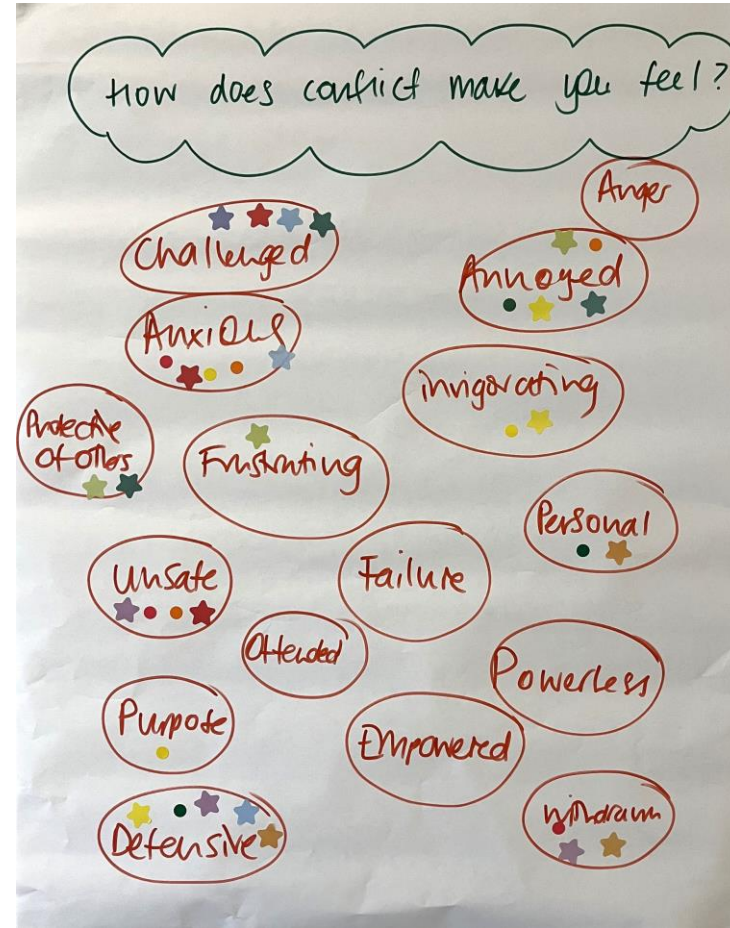 How does conflict make you feel?
Anger
Challenged
Annoyed
Anxious
invigorating
Protective
of others
Frustrating
Personal
Unsafe
Failure
Offended
Powerless
Purpose
Empowered
Defensive
withdrawn